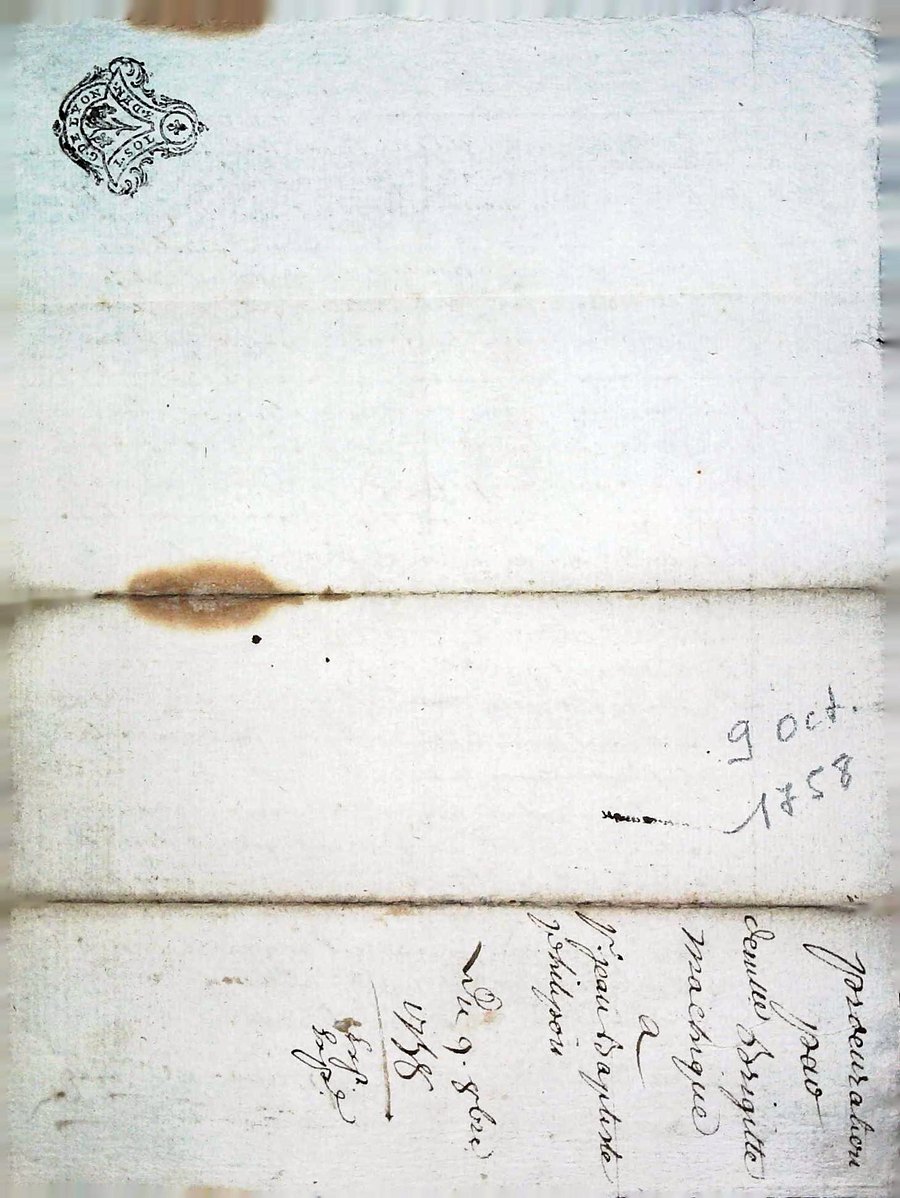 G. DE LYON
I. SOL
9 oct.
1758
procuration
par
demlle Brigitte
machique
a
Sr. jean Baptiste
philipon
Du 9. 8bre
1758
Exp.